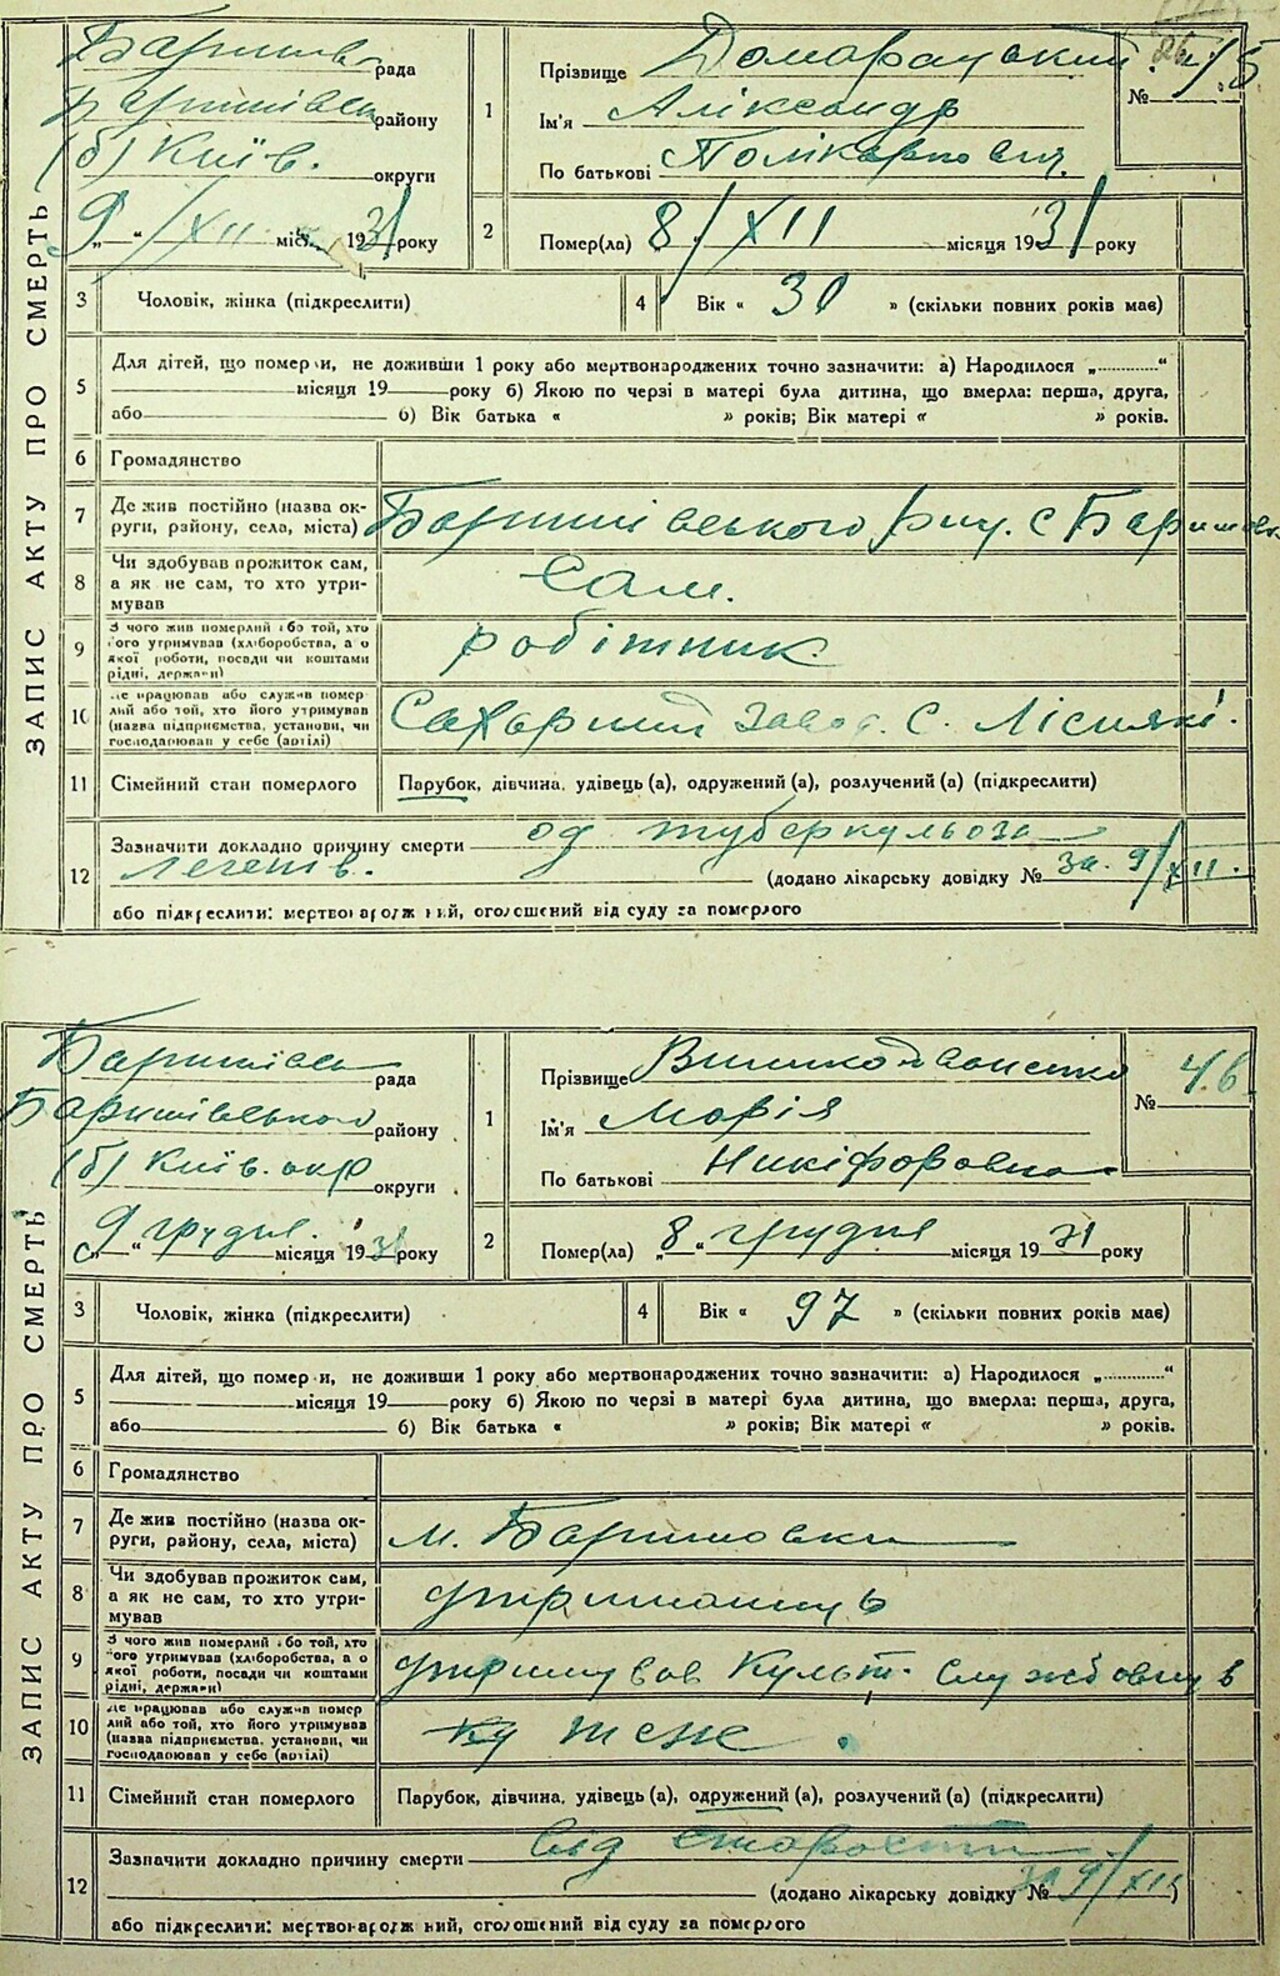 ЗАПИС АКТУ ПРО СМЕРТЬ
рада
району
(б) Київ. округи
9/XII міс. 1931 року
№ 45
1 Прізвище Домарацький
Ім'я Аліксандр
По батькові Полікарпович
2 Помер(ла) 8/XII місяця 1931 року
3 Чоловік, жінка (підкреслити)
4 Вік « 30 » (скільки повних років має)
5 Для дітей, що померли, не доживши 1 року або мертвонароджених точно зазначити: а) Народилося „ “
місяця 19 року б) Якою по черзі в матері була дитина, що вмерла: перша, друга,
або б) Вік батька « » років; Вік матері « » років.
6 Громадянство
7 Де жив постійно (назва округи, району, села, міста) Баришівського с Баришовка
8 Чи здобував прожиток сам, а як не сам, то хто утримував Сам.
9 З чого жив померлий або той, хто його утримував (хліборобства, а о якої роботи, посади чи коштами рідні, держави) робітник
10 Де працював або служив померлий або той, хто його утримував (назва підприємства, установи, чи господарював у себе (артілі) Сахарний завод. с.
11 Сімейний стан померлого Парубок, дівчина, удівець (а), одружений (а), розлучений (а) (підкреслити)
12 Зазначити докладно причину смерти од туберкульоза
легенів. (додано лікарську довідку № за. 9/XII.
або підкреслити: мертвонароджений, оголошений від суду за померлого
ЗАПИС АКТУ ПРО СМЕРТЬ
рада
Баришівського району
(б) Київ. окр округи
„9“ грудня. місяця 1931 року
№ 46.
1 Прізвище
Ім'я Марія
По батькові Никіфоровна
2 Помер(ла) „8“ грудня місяця 1931 року
3 Чоловік, жінка (підкреслити)
4 Вік « 97 » (скільки повних років має)
5 Для дітей, що померли, не доживши 1 року або мертвонароджених точно зазначити: а) Народилося „ “
місяця 19 року б) Якою по черзі в матері була дитина, що вмерла: перша, друга,
або б) Вік батька « » років; Вік матері « » років.
6 Громадянство
7 Де жив постійно (назва округи, району, села, міста) м. Баришовки
8 Чи здобував прожиток сам, а як не сам, то хто утримував
9 З чого жив померлий або той, хто його утримував (хліборобства, а о якої роботи, посади чи коштами рідні, держави) Культ.
10 Де працював або служив померлий або той, хто його утримував (назва підприємства, установи, чи господарював у себе (артілі) теж.
11 Сімейний стан померлого Парубок, дівчина, удівець (а), одружений (а), розлучений (а) (підкреслити)
12 Зазначити докладно причину смерти від старости
(додано лікарську довідку № за 9/XII)
або підкреслити: мертвонароджений, оголошений від суду за померлого